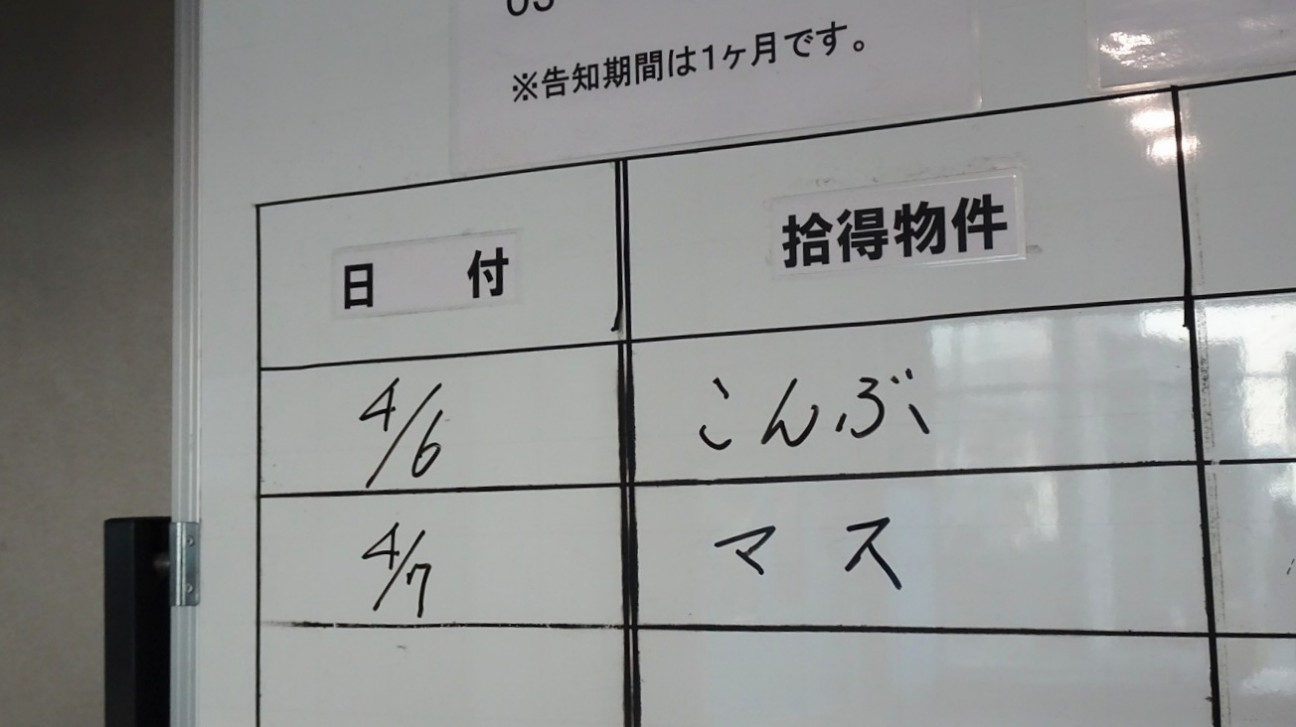 ※告知期間は1ヶ月です。
日 付 拾得物件
4/6 こんぶ
4/7 マス